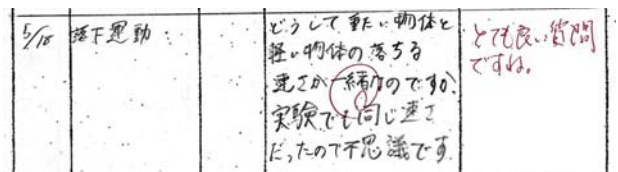 5/18
落下運動
どうして重たい物体と
軽い物体の落ちる
速さが一緒なのですか、
実験でも同じ速さ
だったので不思議です
とても良い質問
ですね。